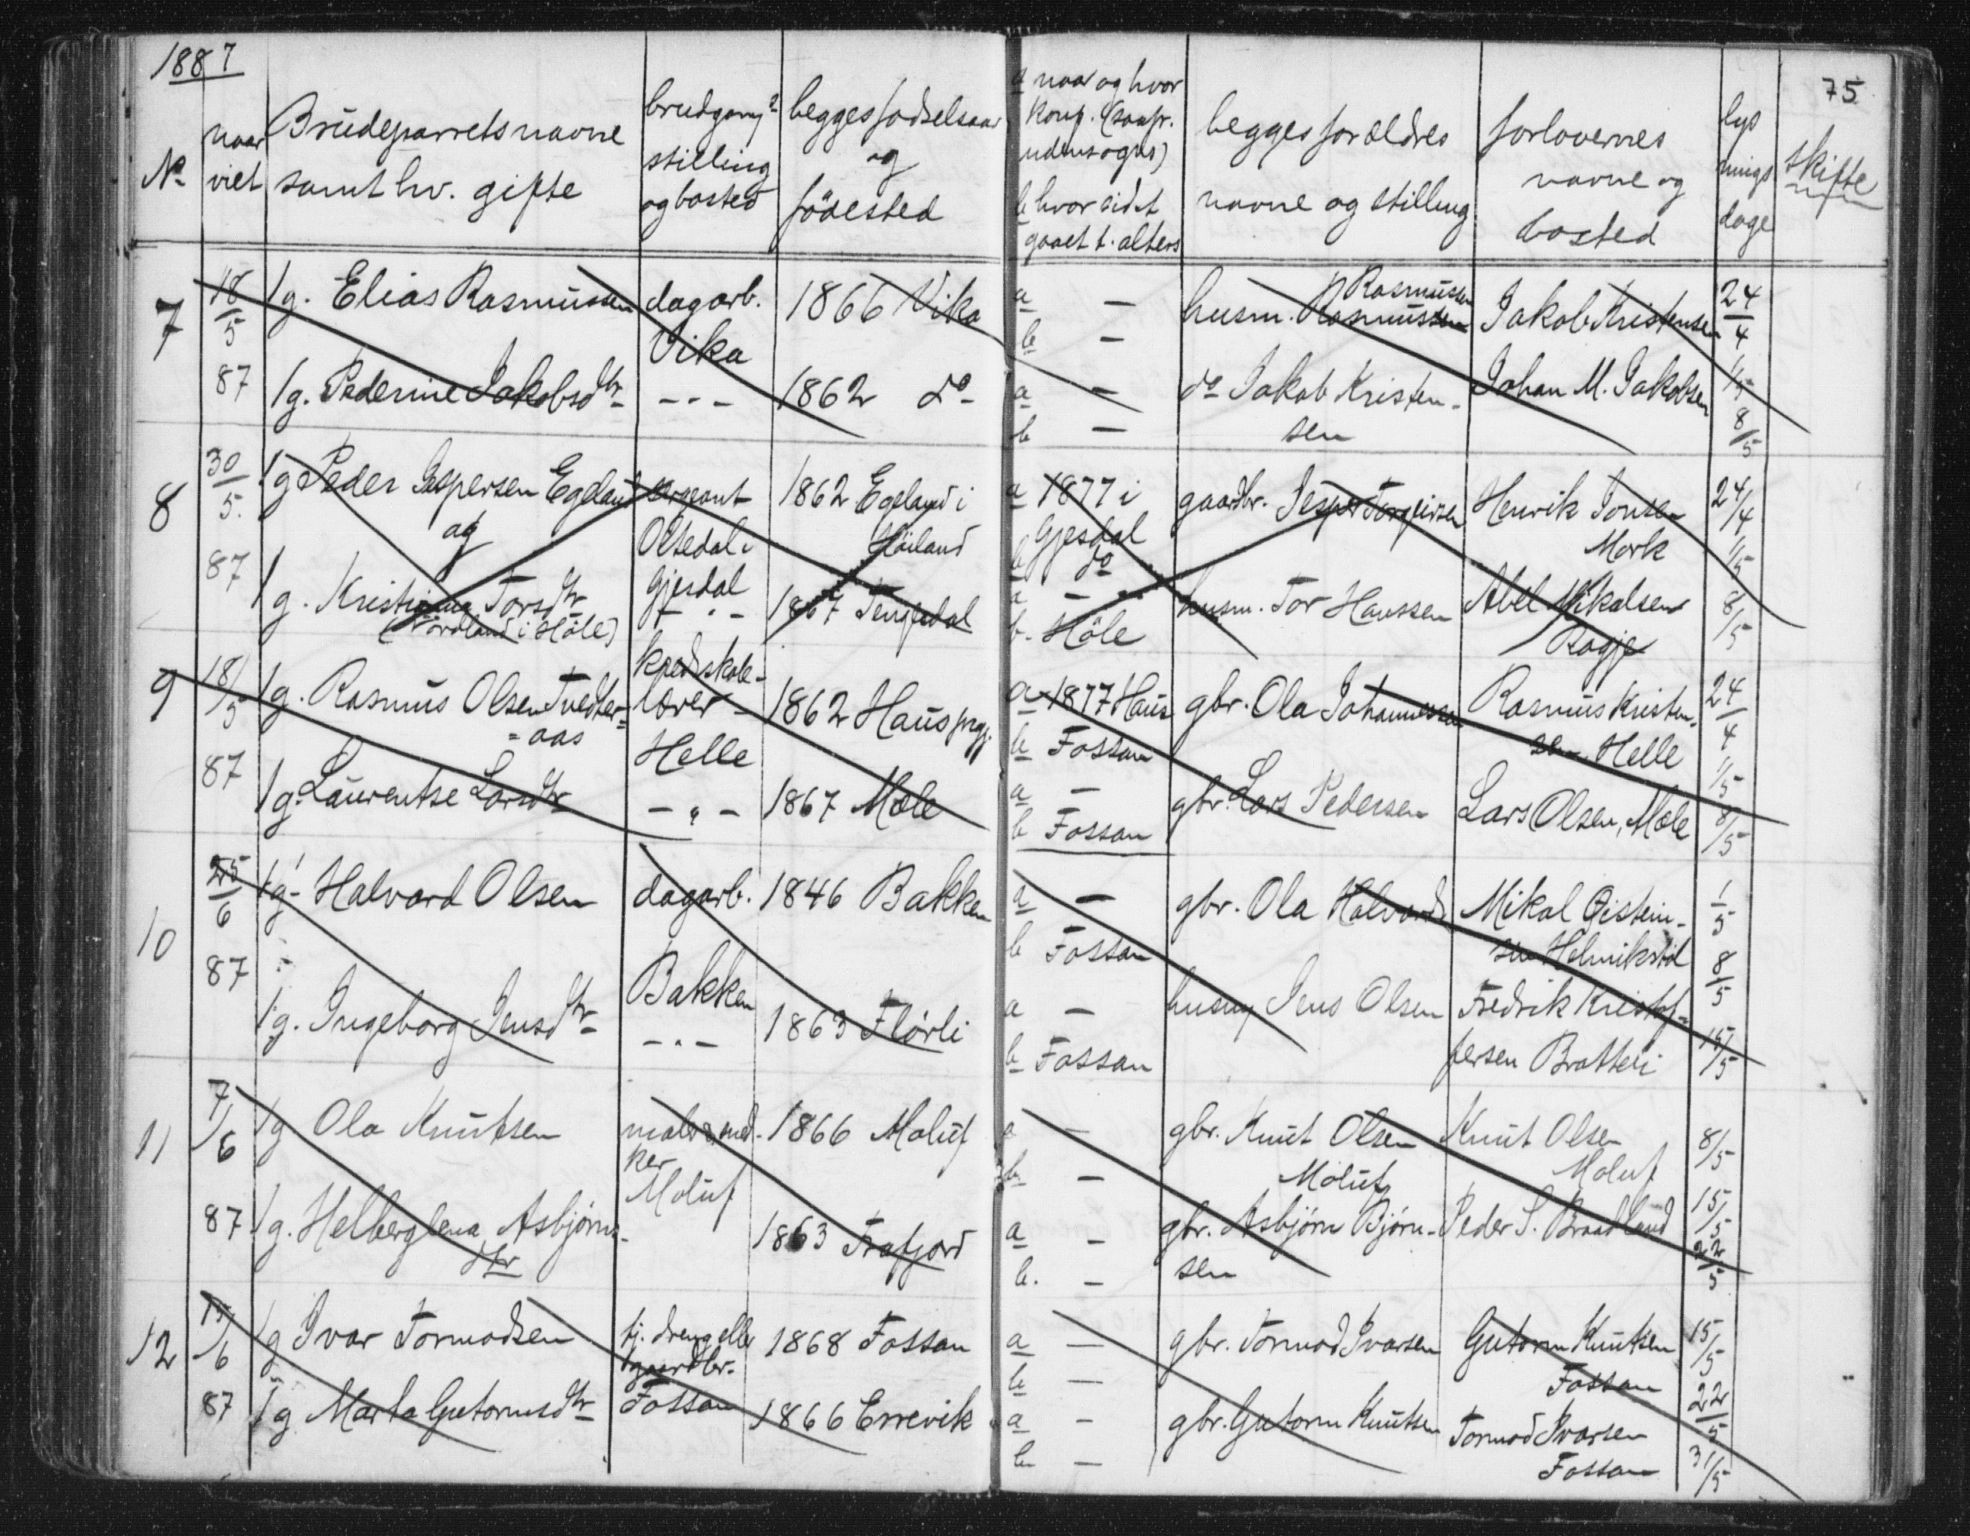 1887
75
No
naar
viet
Brudeparrets navne
samt hv. gifte
brudgoms
stilling
og bosted
begges fødselsaar
og
födested
a naar og hvor
b hvor sidst
gaaet t. alters
begges forældres
navne og stilling
forlovernes
navne og
bosted
lys
nings
dage
skifte
7
18/5
87
1g. Elias Rasmussen
dagarb.
Vika
1866 Vika
a —
b —
husm. Rasmus Rasmussen
Jakob Kristensen
24/4
1g. Pederine Jakobsdtr
- " -
1862 do
a —
b —
do Jakob Kristen-
sen
Johan M. Jakobsen
1/5
8/5
8
30/5.
87
1g Peder Jespersen Egeland
og
sergeant
Oltedal i
Gjesdal
1862 Egeland i
Höiland
a 1877 i
Gjesdal
b do
gaardbr. Jesper Torgeirsen
Henrik Jonsen
Mork
24/4
1/5
1g. Kristianna Torsdtr
i Höle)
- " -
1867
a — " —
b. Höle
husm. Tor Hanssen
Abel Mikalsen
Bogje
8/5
9
18/5
87
1g. Rasmus Olsen Tvedter-
-aas
læver
Helle
1862 Haus prgj.
a 1877 Haus
b Fossan
gbr. Ola Johannessen
Rasmus Kristen-
sen Helle
24/4
1/5
1g. Laurentse Larsdtr
- " -
1867 Mæle
a —
b Fossan
gbr. Lars Pedersen
Lars Olsen, Mæle
8/5
10
25/6
87
1g. Halvard Olsen
dagarb.
Bakken
1846 Bakken
a —
b Fossan
gbr. Ola Halvards
Mikal Øistein-
sen Helmikstöl
1/5
8/5
1g. Ingeborg Jensdtr
- " -
1863 Flörli
a —
b Fossan
husm Jens Olsen
Fredrik Kristof-
fersen Bratteli
15/5
11
7/6
87
1g Ola Knutsen
Moluf
1866 Moluf
a —
b —
gbr. Knut Olsen
Moluf
Knut Olsen
Moluf
8/5
15/5
1g. Helberglena Asbjørns-
dtr
1863 Frafjord
a —
b. —
gbr. Asbjørn Bjørn-
sen
Peder S. Braadland
22/5
12
15/6
87
1g Ivar Tormodsen
tj. dreng eller
gaardbr.
Fossan
1868 Fossan
a —
b —
gbr. Tormod Ivarsen
Gutorm Knutsen
Fossan
15/5
22/5
1g Marta Gutormsdtr
1866 Errevik
a —
b —
gbr. Gutorm Knutsen
Tormod Ivarsen
Fossan
31/5